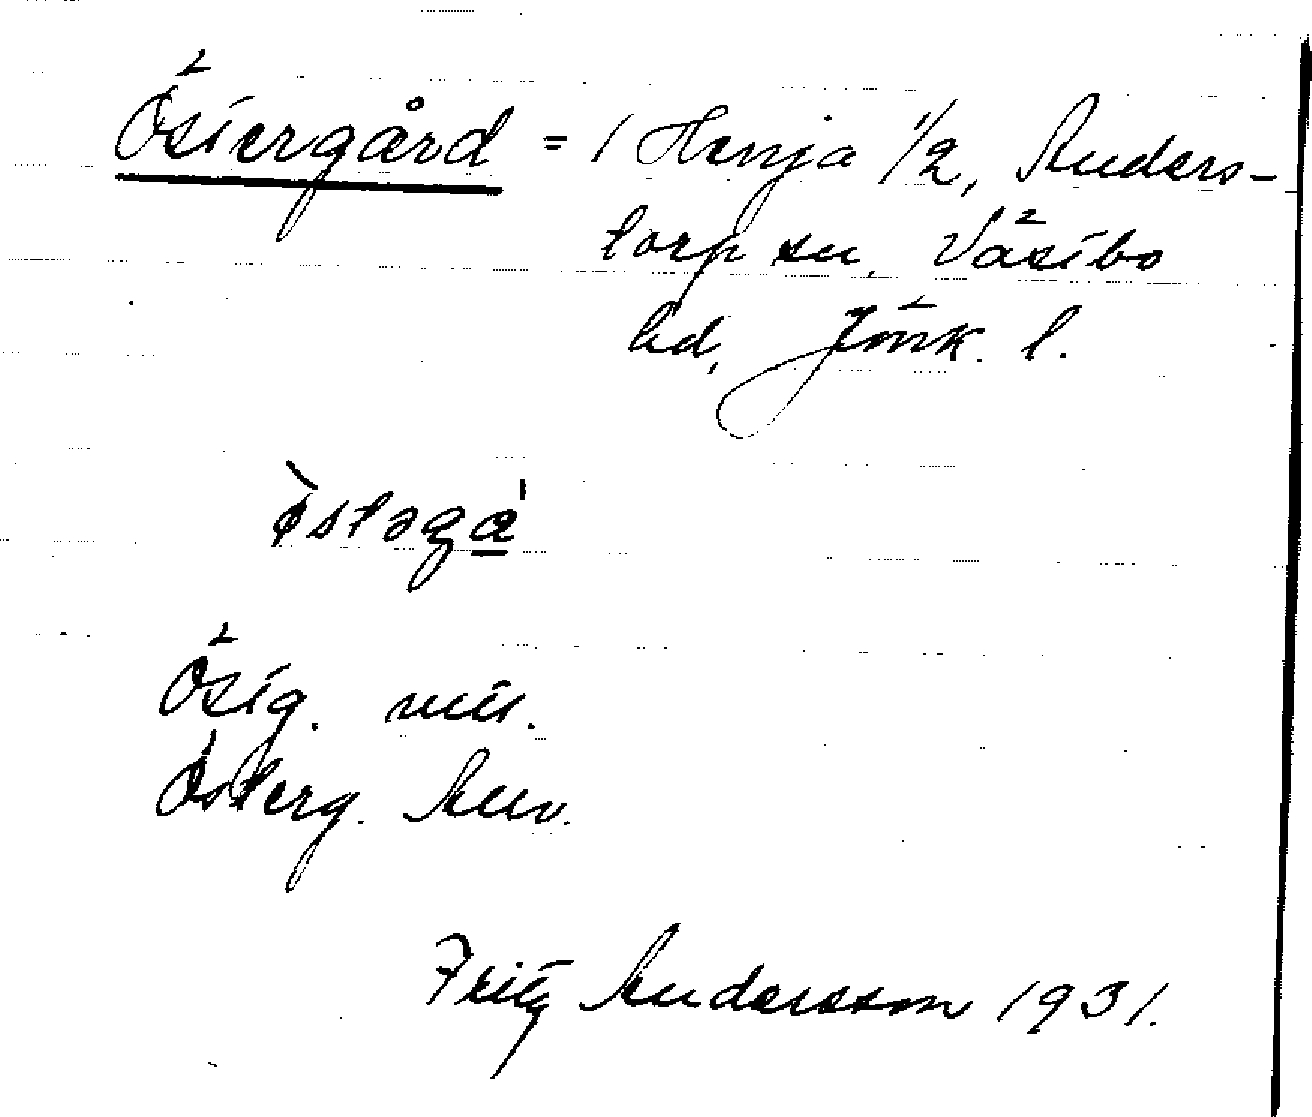 Östergård = 1 Henja 1/2, Anders-
torp sn, Västbo
hd, Jönk. l.
östəga
Östg. mtl.
Österg. Anv.
Fritz Andersson 1931.